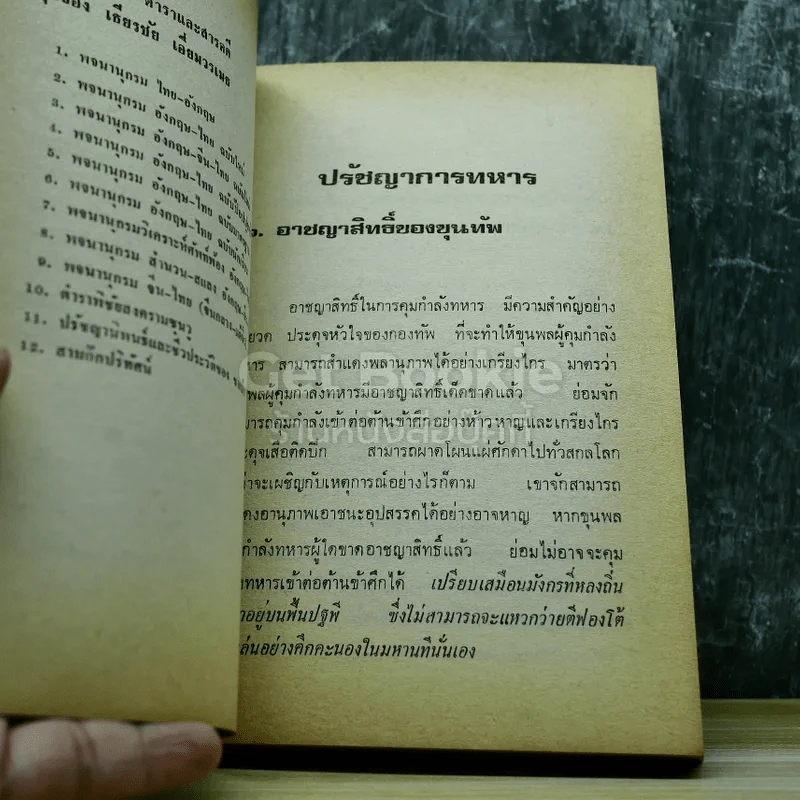 ตำราและสารคดี
ของ เธียรชัย เอี่ยมวรเมธ
1. พจนานุกรม ไทย-อังกฤษ
2. พจนานุกรม อังกฤษ-ไทย ฉบับใหม่
3. พจนานุกรม อังกฤษ-จีน-ไทย
4. พจนานุกรม อังกฤษ-ไทย
5. พจนานุกรม อังกฤษ-ไทย
6. พจนานุกรม อังกฤษ-ไทย
7. พจนานุกรมวิเคราะห์ศัพท์พ้อง
8. พจนานุกรม สำนวน-สแลง
9. พจนานุกรม จีน-ไทย
10. ตำราพิชัยสงครามซุนวู
11. ปรัชญานิพนธ์และชีวประวัติของ
12. สามก๊กปริทัศน์
ปรัชญาการทหาร
อาชญาสิทธิ์ของขุนทัพ
อาชญาสิทธิ์ในการคุมกำลังทหาร มีความสำคัญอย่าง
ยวด ประดุจหัวใจของกองทัพ ที่จะทำให้ขุนพลผู้คุมกำลัง
าร สามารถสำแดงพลานุภาพได้อย่างเกรียงไกร มาตรว่า
พลผู้คุมกำลังทหารมีอาชญาสิทธิ์เด็ดขาดแล้ว ย่อมจัก
มารถคุมกำลังเข้าต่อต้านข้าศึกอย่างห้าวหาญและเกรียงไกร
ะดุจเสือติดปีก สามารถผาดโผนแผ่ศักดาไปทั่วสกลโลก
ว่าจะเผชิญกับเหตุการณ์อย่างไรก็ตาม เขาจักสามารถ
ดงอานุภาพเอาชนะอุปสรรคได้อย่างอาจหาญ หากขุนพล
กำลังทหารผู้ใดขาดอาชญาสิทธิ์แล้ว ย่อมไม่อาจจะคุม
งทหารเข้าต่อต้านข้าศึกได้ เปรียบเสมือนมังกรที่หลงถิ่น
าอยู่บนพื้นปฐพี ซึ่งไม่สามารถจะแหวกว่ายตีฟองโต้
ล่นอย่างคึกคะนองในมหานทีนั่นเอง
Get Bookie
ร้านหนังสือบุ๊คกี้